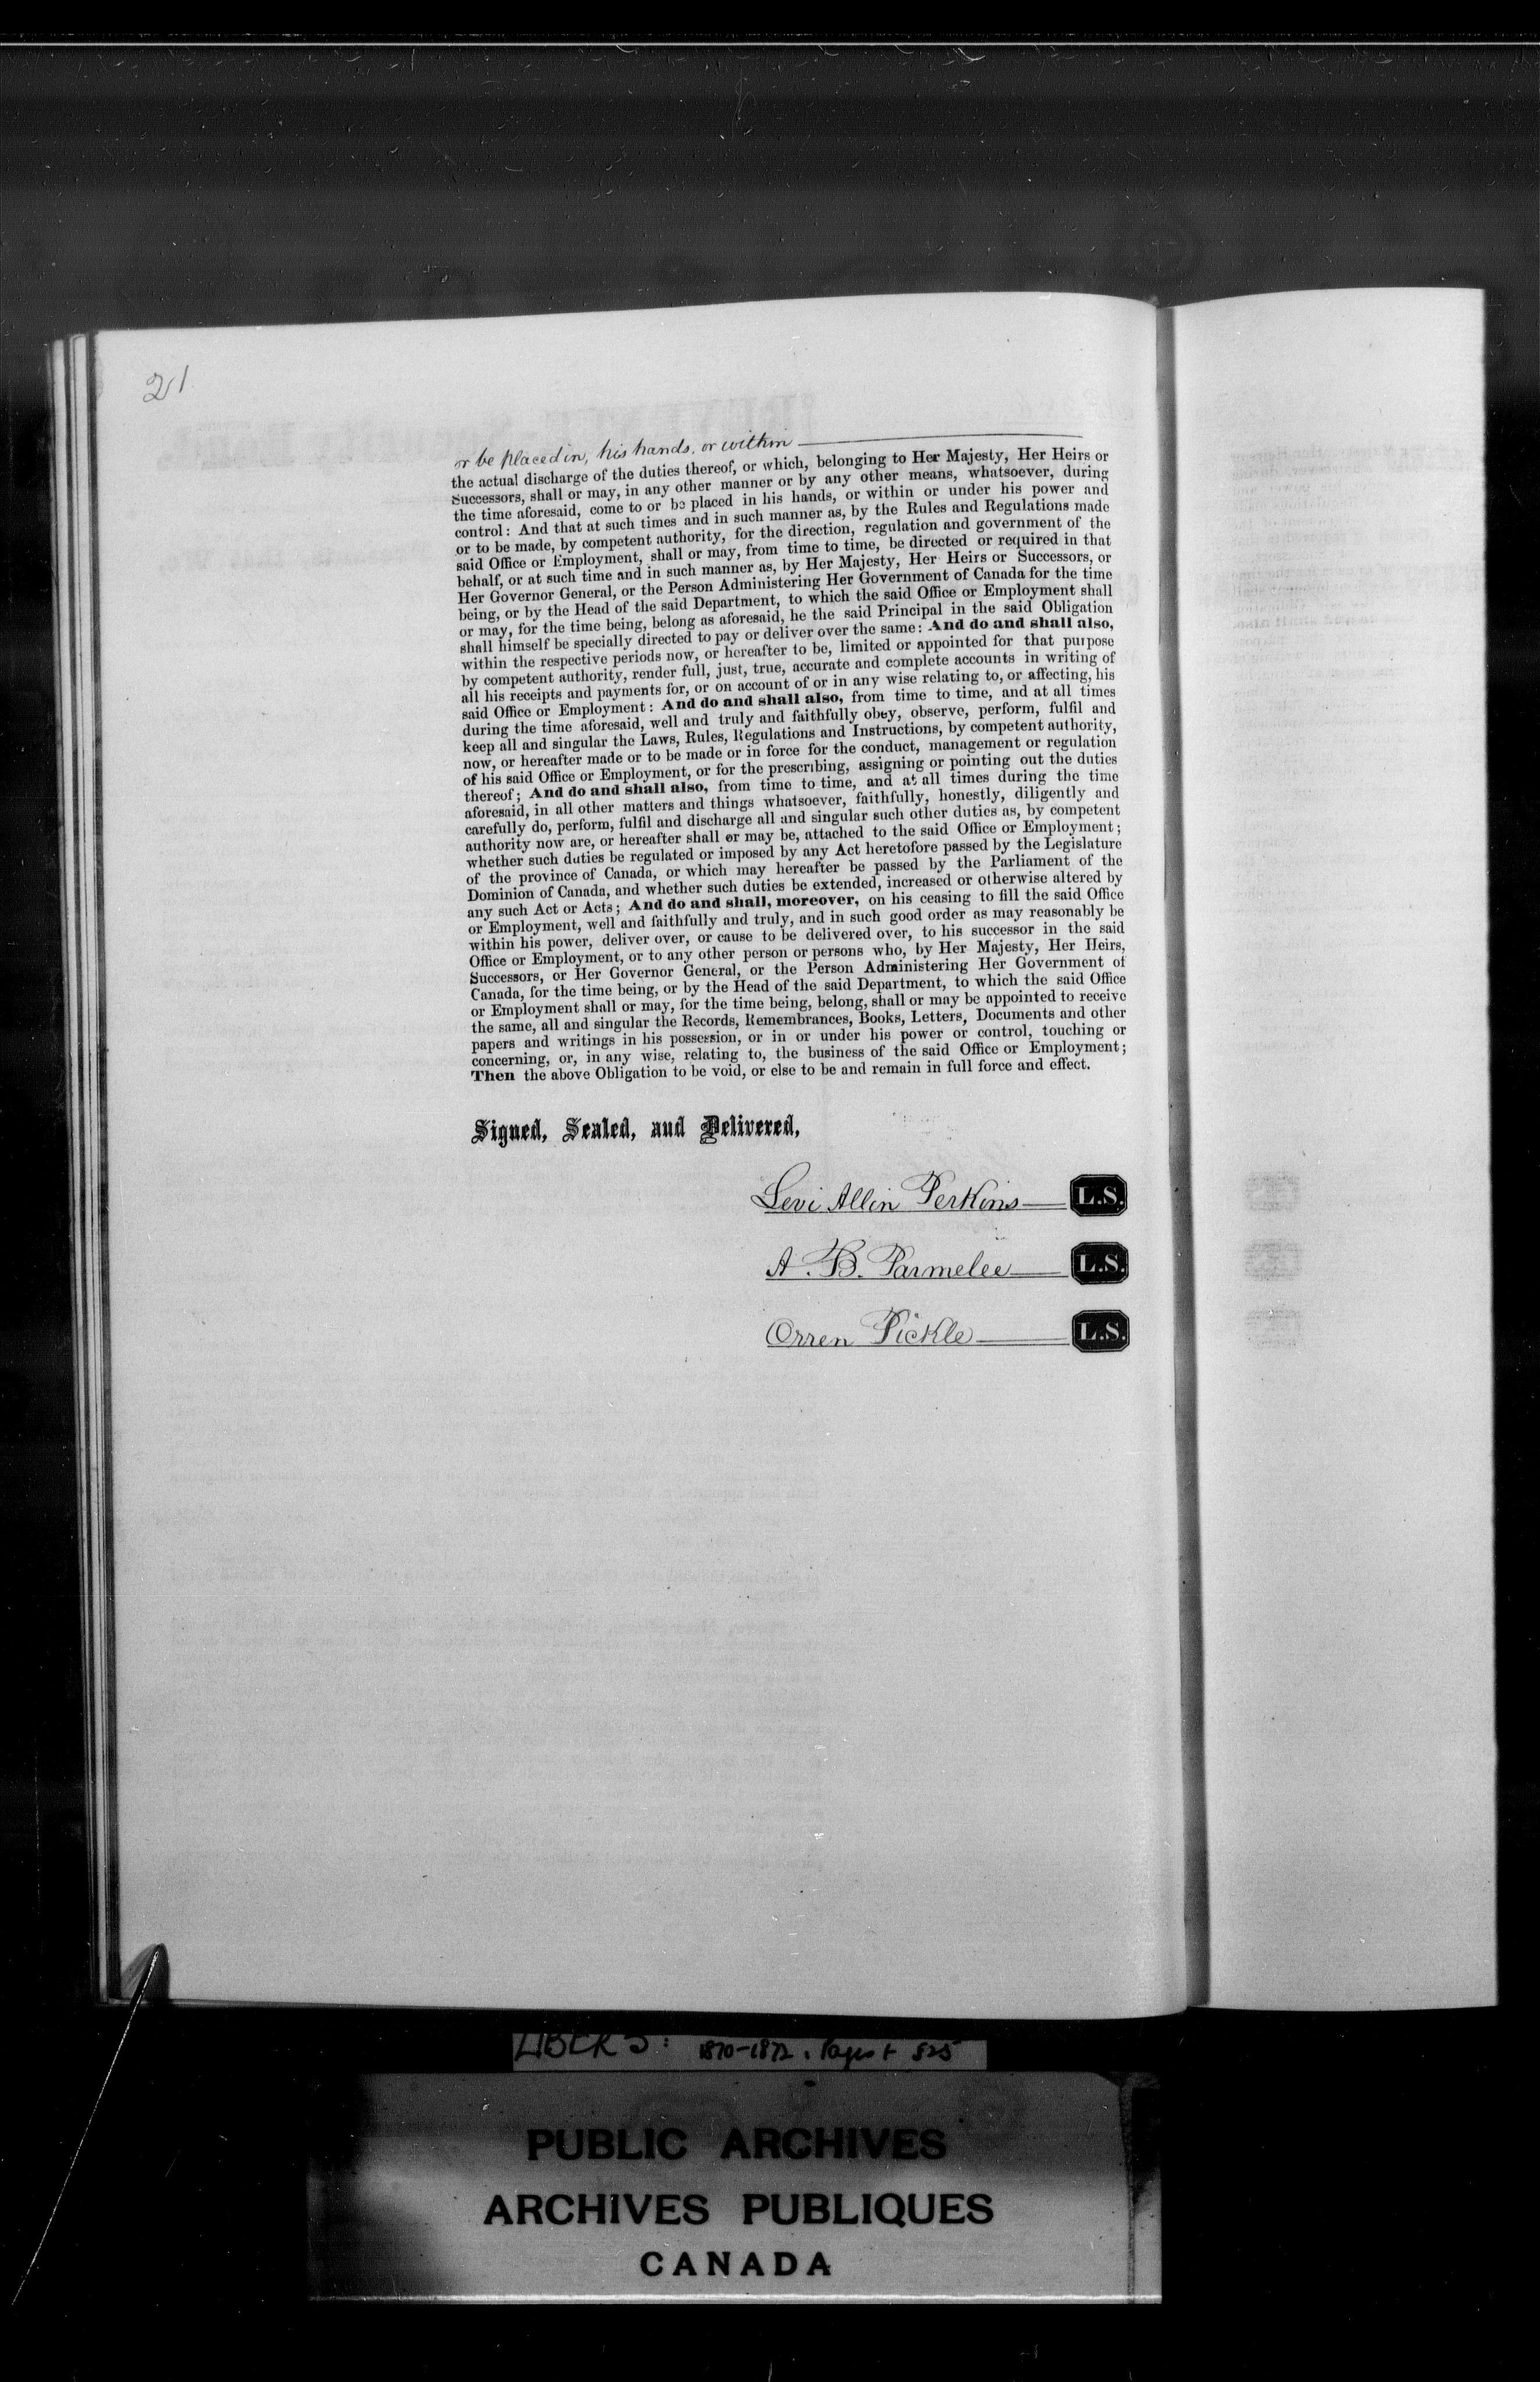 21
or be placed in, his hands, or within
the actual discharge of the duties thereof, or which, belonging to Her Majesty, Her Heirs or
Successors, shall or may, in any other manner or by any other means, whatsoever, during
the time aforesaid, come to or be placed in his hands, or within or under his power and
control: And that at such times and in such manner as, by the Rules and Regulations made
or to be made, by competent authority, for the direction, regulation and government of the
said Office or Employment, shall or may, from time to time, be directed or required in that
behalf, or at such time and in such manner as, by Her Majesty, Her Heirs or Successors, or
Her Governor General, or the Person Administering Her Government of Canada for the time
being, or by the Head of the said Department, to which the said Office or Employment shall
or may, for the time being, belong as aforesaid, he the said Principal in the said Obligation
shall himself be specially directed to pay or deliver over the same: And do and shall also,
within the respective periods now, or hereafter to be, limited or appointed for that purpose
by competent authority, render full, just, true, accurate and complete accounts in writing of
all his receipts and payments for, or on account of or in any wise relating to, or affecting, his
said Office or Employment: And do and shall also, from time to time, and at all times
during the time aforesaid, well and truly and faithfully obey, observe, perform, fulfil and
keep all and singular the Laws, Rules, Regulations and Instructions, by competent authority,
now, or hereafter made or to be made or in force for the conduct, management or regulation
of his said Office or Employment, or for the prescribing, assigning or pointing out the duties
thereof; And do and shall also, from time to time, and at all times during the time
aforesaid, in all other matters and things whatsoever, faithfully, honestly, diligently and
carefully do, perform, fulfil and discharge all and singular such other duties as, by competent
authority now are, or hereafter shall or may be, attached to the said Office or Employment;
whether such duties be regulated or imposed by any Act heretofore passed by the Legislature
of the province of Canada, or which may hereafter be passed by the Parliament of the
Dominion of Canada, and whether such duties be extended, increased or otherwise altered by
any such Act or Acts; And do and shall, moreover, on his ceasing to fill the said Office
or Employment, well and faithfully and truly, and in such good order as may reasonably be
within his power, deliver over, or cause to be delivered over, to his successor in the said
Office or Employment, or to any other person or persons who, by Her Majesty, Her Heirs,
Successors, or Her Governor General, or the Person Administering Her Government of
Canada, for the time being, or by the Head of the said Department, to which the said Office
or Employment shall or may, for the time being, belong, shall or may be appointed to receive
the same, all and singular the Records, Remembrances, Books, Letters, Documents and other
papers and writings in his possession, or in or under his power or control, touching or
concerning, or, in any wise, relating to, the business of the said Office or Employment;
Then the above Obligation to be void, or else to be and remain in full force and effect.
Signed, Sealed, and Delivered,
Levi Allin Perkins L.S.
A. B. Parmelee L.S.
Orren Pickle L.S.
LIBER 5: 1870-1872. Pages 1- 525
PUBLIC ARCHIVES
ARCHIVES PUBLIQUES
CANADA